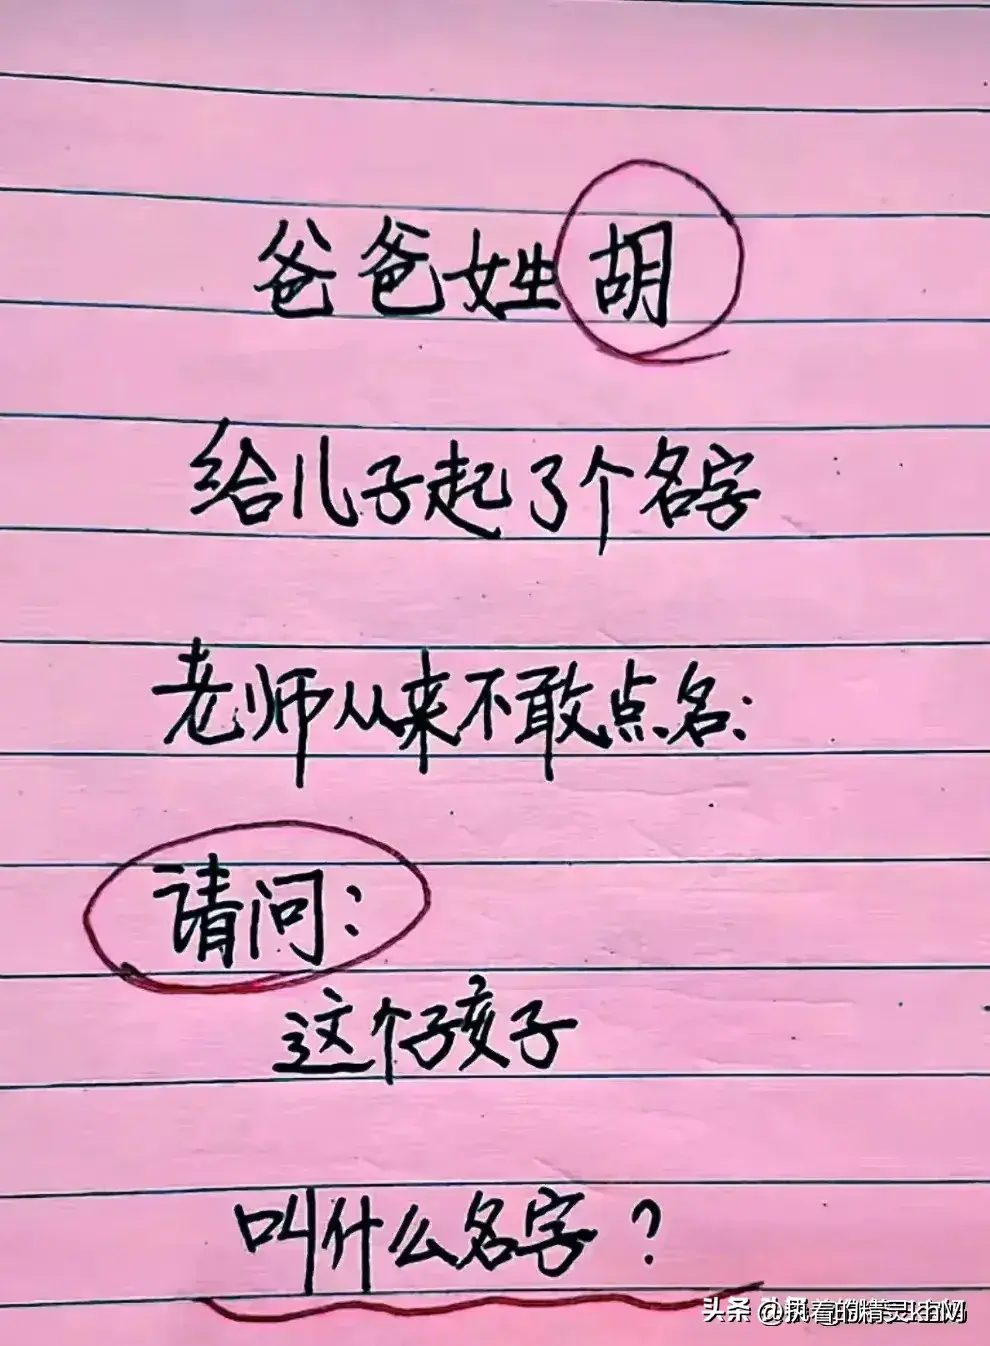 爸爸姓胡
给儿子起了个名字
老师从来不敢点名:
请问:
这个孩子
叫什么名字?
头条 @执着的精灵